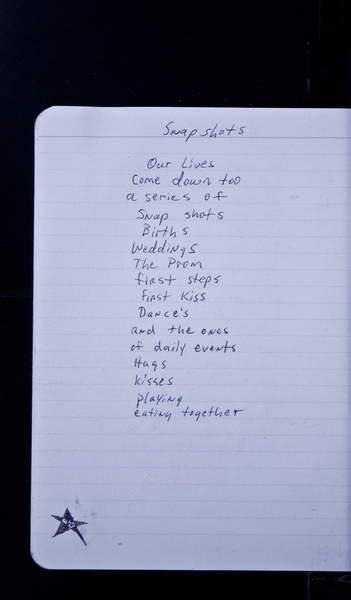 Snap shots
Our Lives
Come down too
a series of
Snap shots
Births
Weddings
The Prom
first steps
First Kiss
Dance's
and the ones
of daily events
Hugs
kisses
playing
eating together